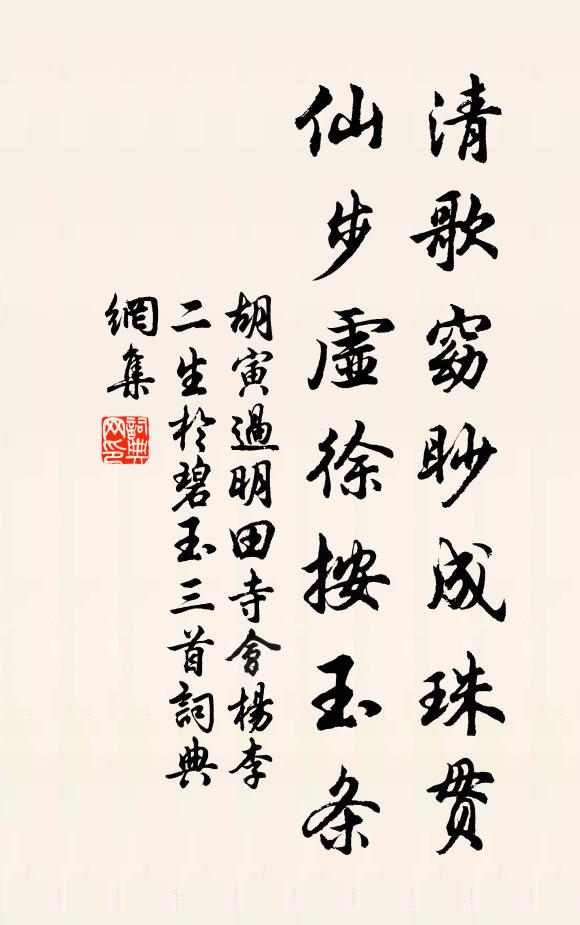 清歌窈眇成珠贯
仙步虚徐按玉条
胡寅過明田寺會楊李
二生於碧玉三首詞典
網集
詞典网印